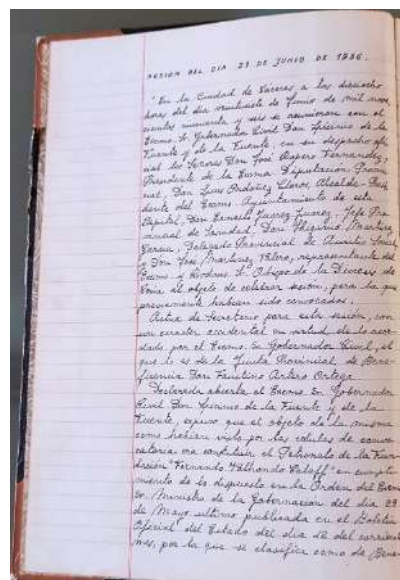 SESION DEL DIA 23 DE JUNIO DE 1956.
"En la Ciudad de a las dieciocho
horas del dia de Junio de mil nove-
cientos cincuenta y seis se reunieron con el
Excmo. Sr. Gobernador Civil Don de la
Fuente y de la Fuente, en su despacho ofi-
cial los Señores Don José Fernandez,
Presidente de la Excma. Diputación Provin-
cial, Don Luis Ordoñez Claros, Alcalde-Presi-
dente del Excmo. Ayuntamiento de esta
Capital, Don Ernesto Juarez Juarez, Jefe Pro-
vincial de Sanidad, Don Higinio Martinez
Garcia, Delegado Provincial de Auxilio Social,
y Don José Martinez Valero, representante del
Excmo y Rvdmo. Sr. Obispo de la Diocesis de
Coria al objeto de celebrar sesión, para la que
previamente habian sido convocados.
Actua de Secretario para esta sesión, con
un caracter accidental en virtud de lo acor-
dado por el Excmo. Sr. Gobernador Civil, el
que lo es de la Junta Provincial de Bene-
ficencia Don Faustino Artero Ortega.
Declarada abierta el Excmo. Sr. Gobernador
Civil Don de la Fuente y de la
Fuente, expuso que el objeto de la misma
como habian visto por las cédulas de convo-
catoria era constituir el Patronato de la Fun-
dación "Fernando Valhondo Calaff" en cumpli-
miento de lo dispuesto en la Orden del Excmo
Sr. Ministro de la Gobernacion del dia 29
de Mayo ultimo publicada en el Boletin
Oficial del Estado del dia 12 del corriente
mes, por la que se clasifica como de Bene-